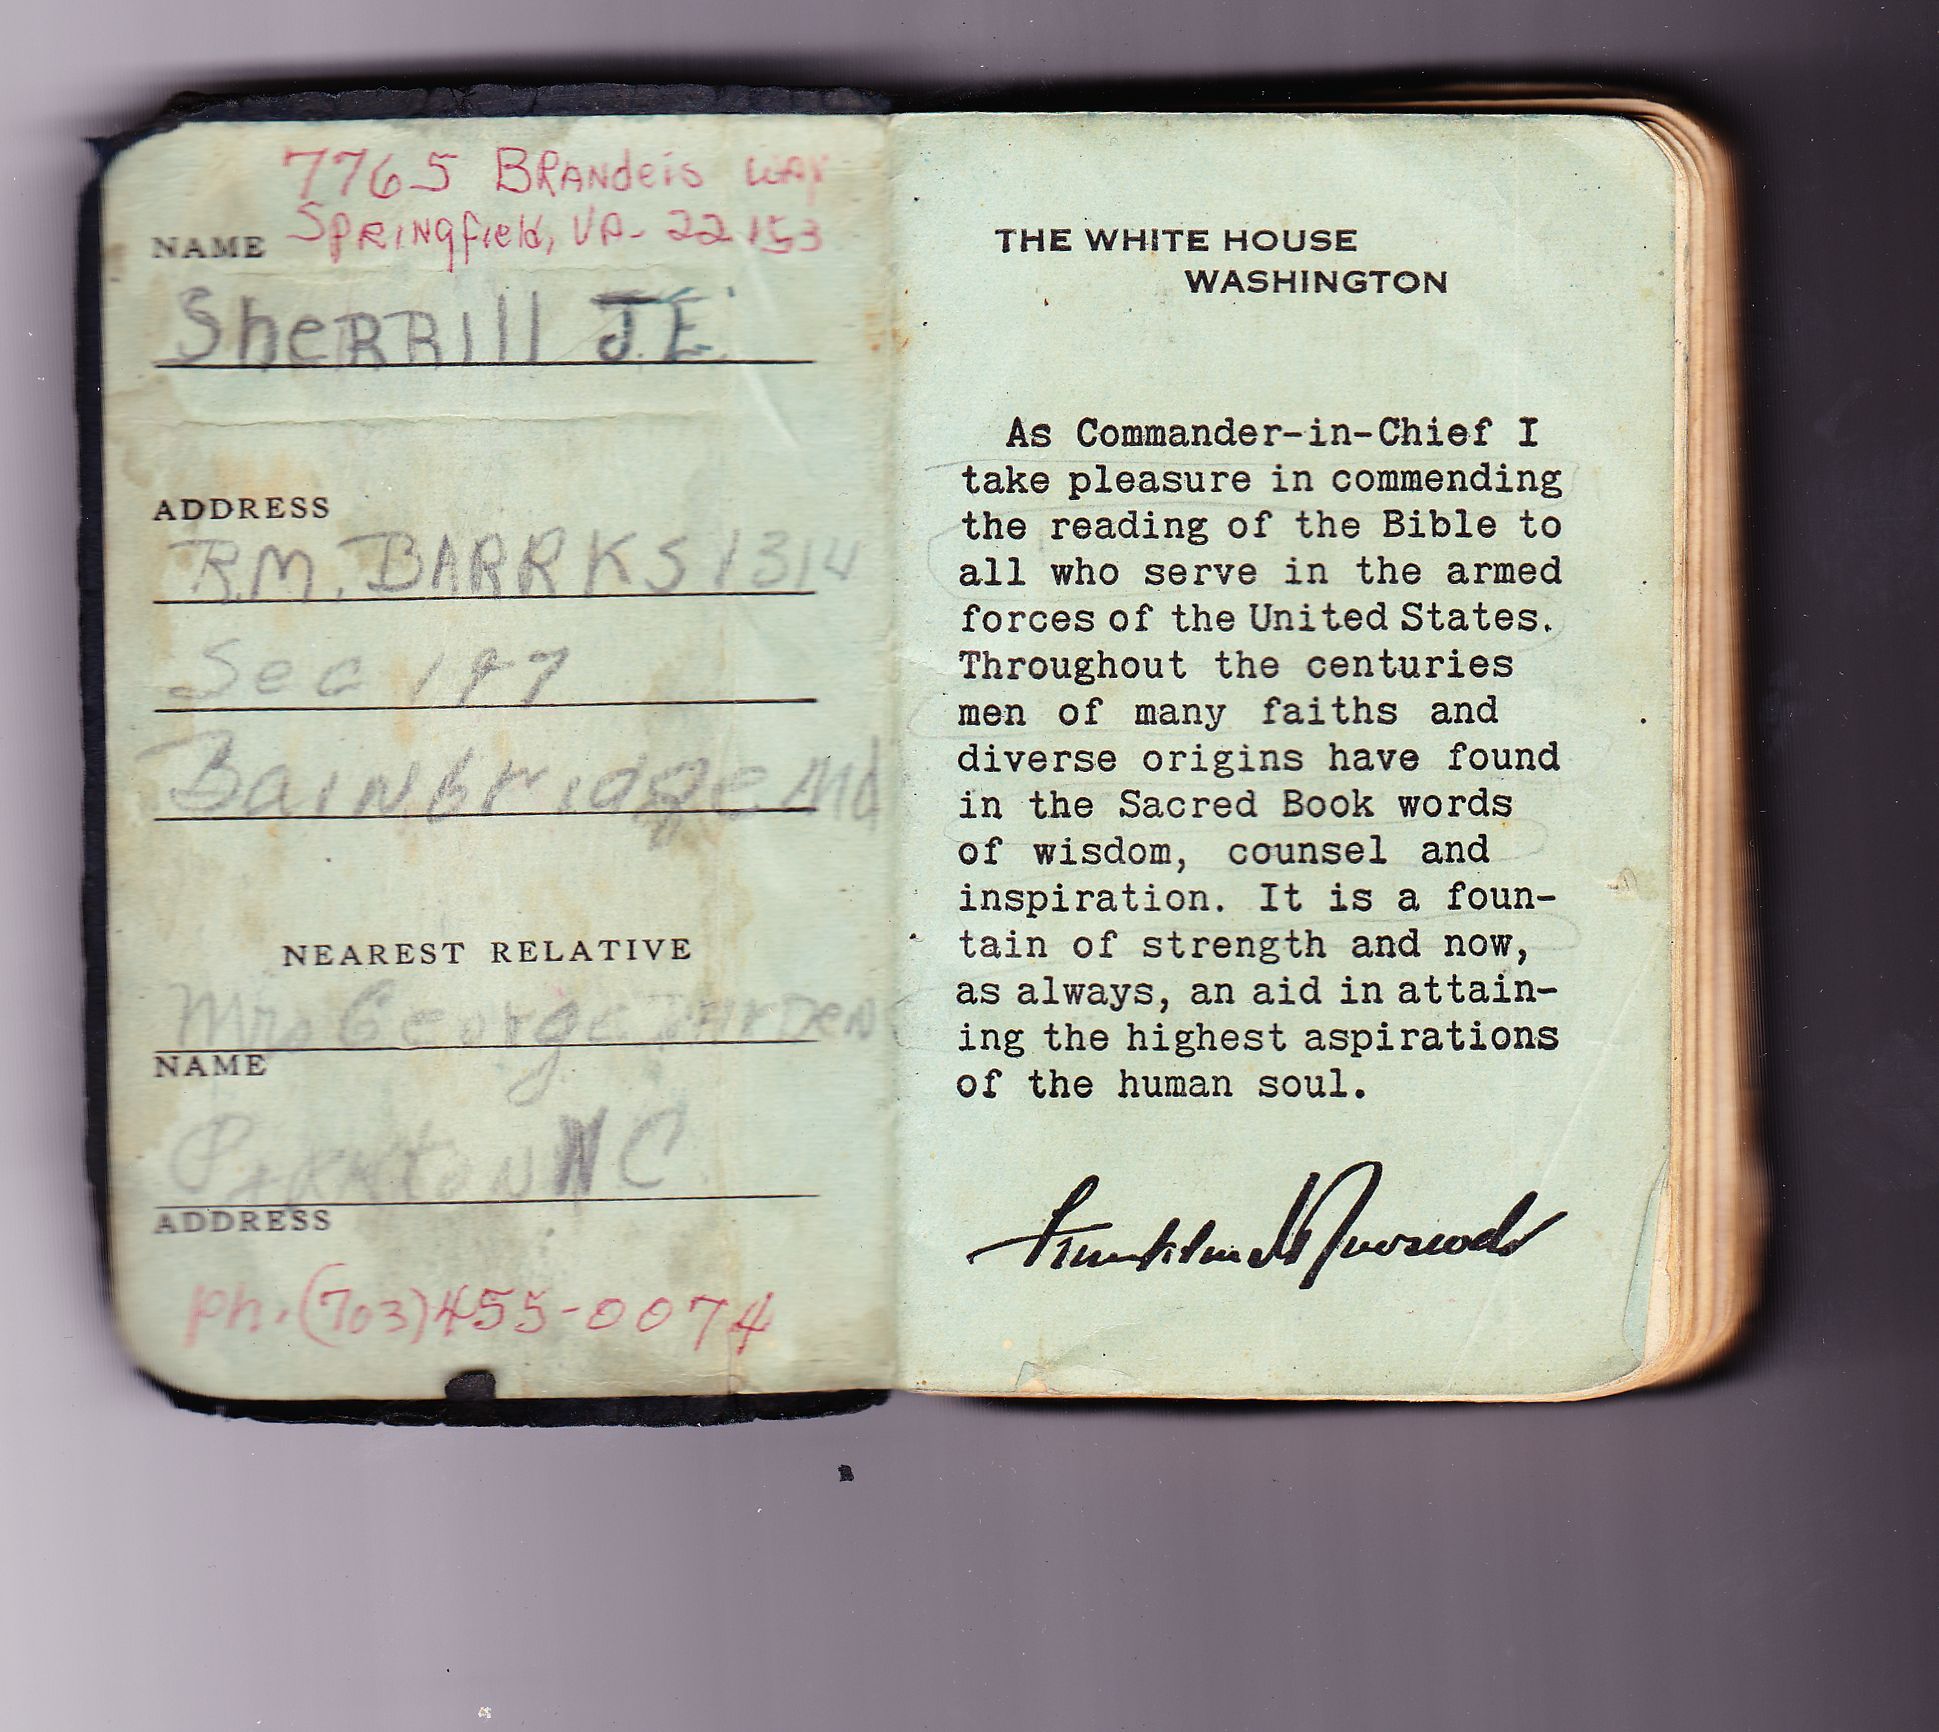 7765 BRANdeis WAY
SPRINGfield, VA- 22153
NAME
SheRRill J.E.
ADDRESS
R.M. BARRKS 1314
Sec 197
Bainbridge Md
NEAREST RELATIVE
Mrs George
NAME
PArkton NC
ADDRESS
ph. (703) 455-0074
THE WHITE HOUSE
WASHINGTON
As Commander-in-Chief I
take pleasure in commending
the reading of the Bible to
all who serve in the armed
forces of the United States.
Throughout the centuries
men of many faiths and
diverse origins have found
in the Sacred Book words
of wisdom, counsel and
inspiration. It is a foun-
tain of strength and now,
as always, an aid in attain-
ing the highest aspirations
of the human soul.
Franklin D Roosevelt